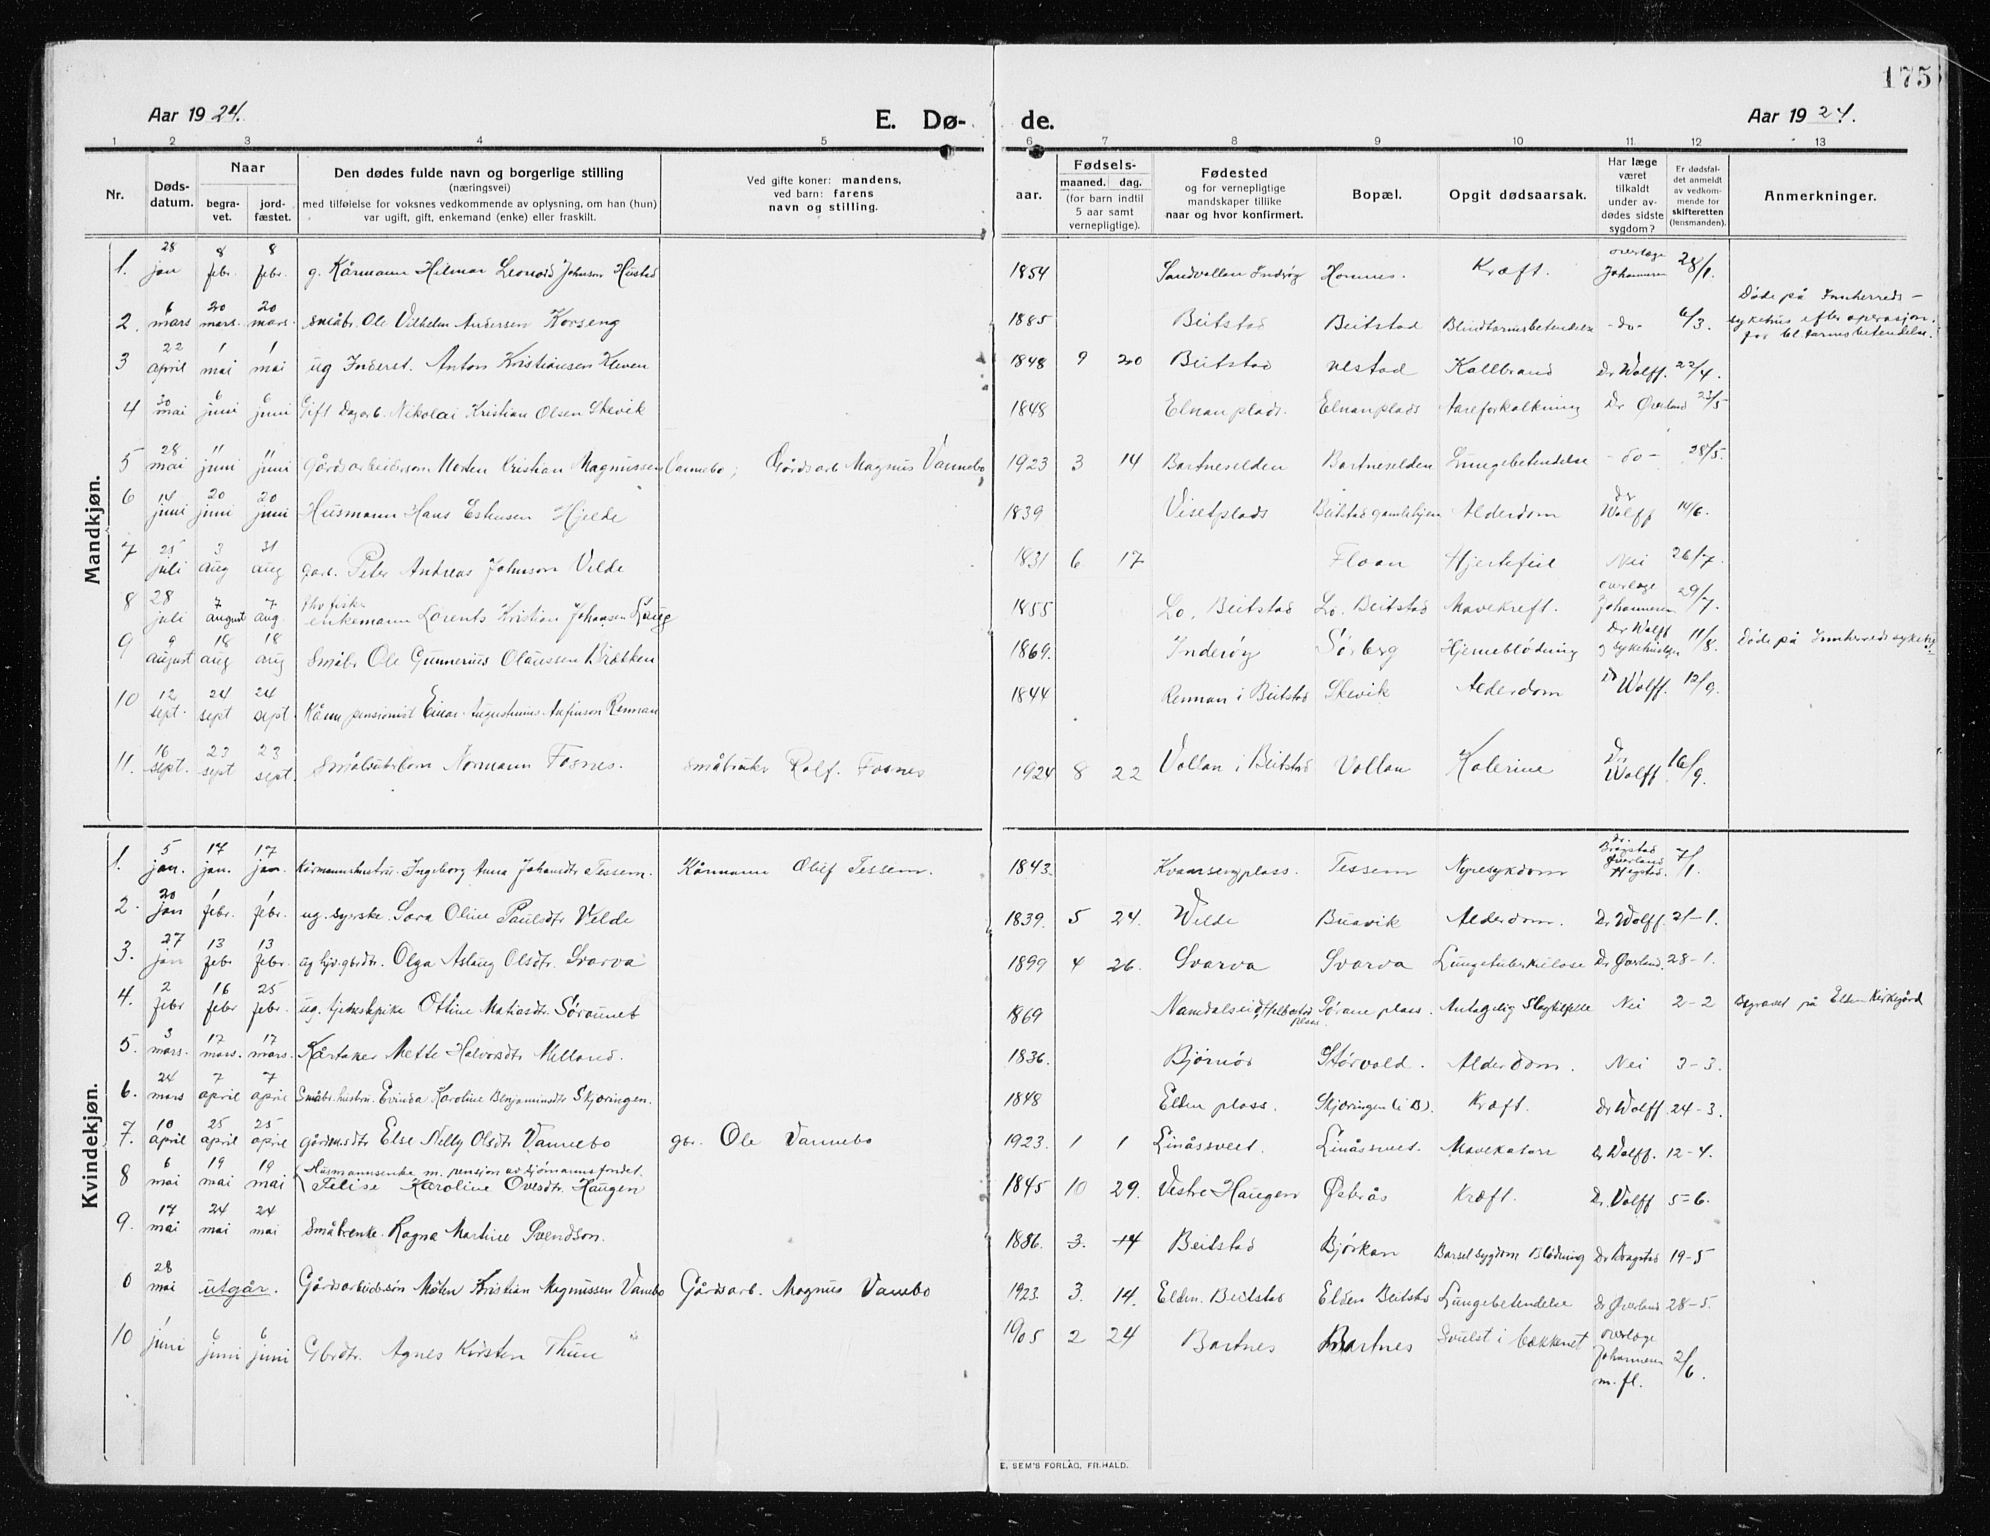 175
Aar 1924. E. Dø- de. Aar 1924.
1 2 3 4 5 6 7 8 9 10 11 12 13
Nr. Døds-datum. Naar begra-vet. jord-fæstet. Den dødes fulde navn og borgerlige stilling (næringsvei) med tilføielse for voksnes vedkommende av oplysning, om han (hun) var ugift, gift, enkemand (enke) eller fraskilt. Ved gifte koner: mandens, ved barn: farens navn og stilling. Fødsels- aar. maaned. dag. (for barn indtil 5 aar samt vernepligtige). Fødested og for vernepligtige mandskaper tillike naar og hvor konfirmert. Bopæl. Opgit dødsaarsak. Har læge været tilkaldt under av-dødes sidste sygdom? Er dødsfal-det anmeldt av vedkom-mende for skifteretten (lensmanden). Anmerkninger.
Mandkjøn.
1. 28 jan 8 febr. 8 febr. g. Kårmann Hilmar Leonard Johnsen Hustad 1854 Sandvollan Inderøy Homnes. Kræft. overlæge Johannesen 28/1.
2. 6 mars 20 mars. 20 mars. småbr. Ole Vilhelm Andersen Korseng 1885 Beitstad Beitstad Blindtarmsbetendelse -do- 6/3. Døde på Innherreds-sykehus efter operasjon for bl. tarmsbetendelse.
3 22 april 1 mai 1 mai ug Inderst. Anton Kristiansen Kleven 1848 9 20 Beitstad Vestad Kallbrand Dr Wolff. 22/4.
4 30 mai 6 juni 6 juni Gift Dagarb. Nikolai Kristian Olsen Skevik 1848 Elnanplads. Elnanplads Aareforkalkning Dr Øverland 23/5
5 28 mai 11 juni 11 juni Gårdsarbeidersøn Morten Kristian Magnussen Vannebo; Gårdsarb Magnus Vannebo 1923 3 14 Bartneselden Bartneselden Lungebetendelse -do- 28/5.
6 14 juni 20 juni 20 juni Husmann Hans Estensen Hjelde 1839 Visetplads Beitstad gamlehjem Alderdom dr Wolff 14/6.
7 25 juli 3 aug 31 aug gard. Peter Andreas Johnson Velde 1831 6 17 Floan Hjertefeil Nei 26/7.
8 28 juli 7 august 7 aug. fhv fisker enkemann Lorents Kristian Johansen Haug 1855 Lo, Beitstad Lo. Beitstad Mavekreft. overlæge Johannesen 29/7.
9 9 august 18 aug 18 aug Småbr Ole Gunnerius Olaussen Brætken 1869. Inderøy Sørberg Hjerneblødning Dr Wolff og sykehuslegen 11/8. Døde på Innherreds sykehus
10 12 sept. 24 sept 24 sept. Kårm pensionist Einar Augustinus Anfinson Rennan 1844 Rennan i Beitstad Skevik Alderdom Dr Wolff. 12/9.
11. 16 sept. 23 sept 23 sept. Småbrukerbarn Normann Fosnes. småbruker Rolf. Fosnes 1924 8 22 Vollan i Beitstad Vollan Kolerine Dr. Wolff. 16/9.
Kvindekjøn.
1. 5 jan. 17 jan. 17 jan. Kårmannshustru. Ingeborg Anna Johansdtr Tessem. Kårmann Oluf Tessem. 1843. Kvamsengplass. Tessem Nyresykdom Dr. Bragstad Øverland Hegstad. 7/1.
2. 20 jan 1 febr. 1 febr. ug. syerske. Sara Oline Paulsdtr Velde 1839. 5 24. Velde Buavik Alderdom. Dr Wolff. 21-1.
3. 27 jan 13 febr 13 febr. ug hjv. gbrdtr. Olga Aslaug Olsdtr. Svarva 1899 4 26. Svarva Svarva Lungetuberkulose Dr Øverland. 28-1.
4. 2 febr 16 febr 25 febr. ug. tjenestepike Ottine Matiasdtr. Søraunet 1869 Namdalseid, Helbostad plass. Søraune plass. Antagelig Slagtilfelle Nei 2-2 Begravet på Elden Kirkegård
5. 3 mars. 17 mars. 17 mars. Kårtaker Mette Halvorsdtr Melland. 1836. Bjørnør Størvold. Alderdom. Nei 3-3.
6. 24 mars 7 april 7 april Småbr. hustru. Evinda Karoline Benjaminsdtr Skjæringen. 1848 Elden plass. Skjæringen (i B). Kræft. Dr Wolff. 24-3.
7. 10 april 25 april 25 april gårdmsdtr Else Nelly Olsdtr Vannebo gbr. Ole Vannebo 1923. 1 1 Linåsveet. Linåsveet. Mavekatarr Dr Wolff. 12-4.
8 6 mai 19 mai 19 mai Husmannsenke m. pensjon av sjømannsfondet. Felise Karoline Ovesdtr Haugen 1845 10 29. Vestre Haugen Østerås Kræft. Dr. Wolff 5-6.
9. 17 mai 24 mai 24 mai Småbr.enke. Ragna Martine Svendson. 1886. 3. 14 Beitstad Bjørkan Barselsygdom Blødning Dr Bragstad 19-5
0 28 mai utgår. Gårdsarbeidersøn Morten Kristian Magnussen Vannebo Gårdsarb. Magnus Vannebo 1923. 3. 14. Elden. Beitstad Elden Beitstad Lungebetendelse Dr Øverland 28-5.
10 1 juni 6 juni 6 juni Gbrdtr. Agnes Kirsten Thun 1905 2 24 Bartnes Bartnes Svulst i bækkenet overlæge Johannesen m. fl. 2/6.
E. SEM'S FORLAG, FR.HALD.